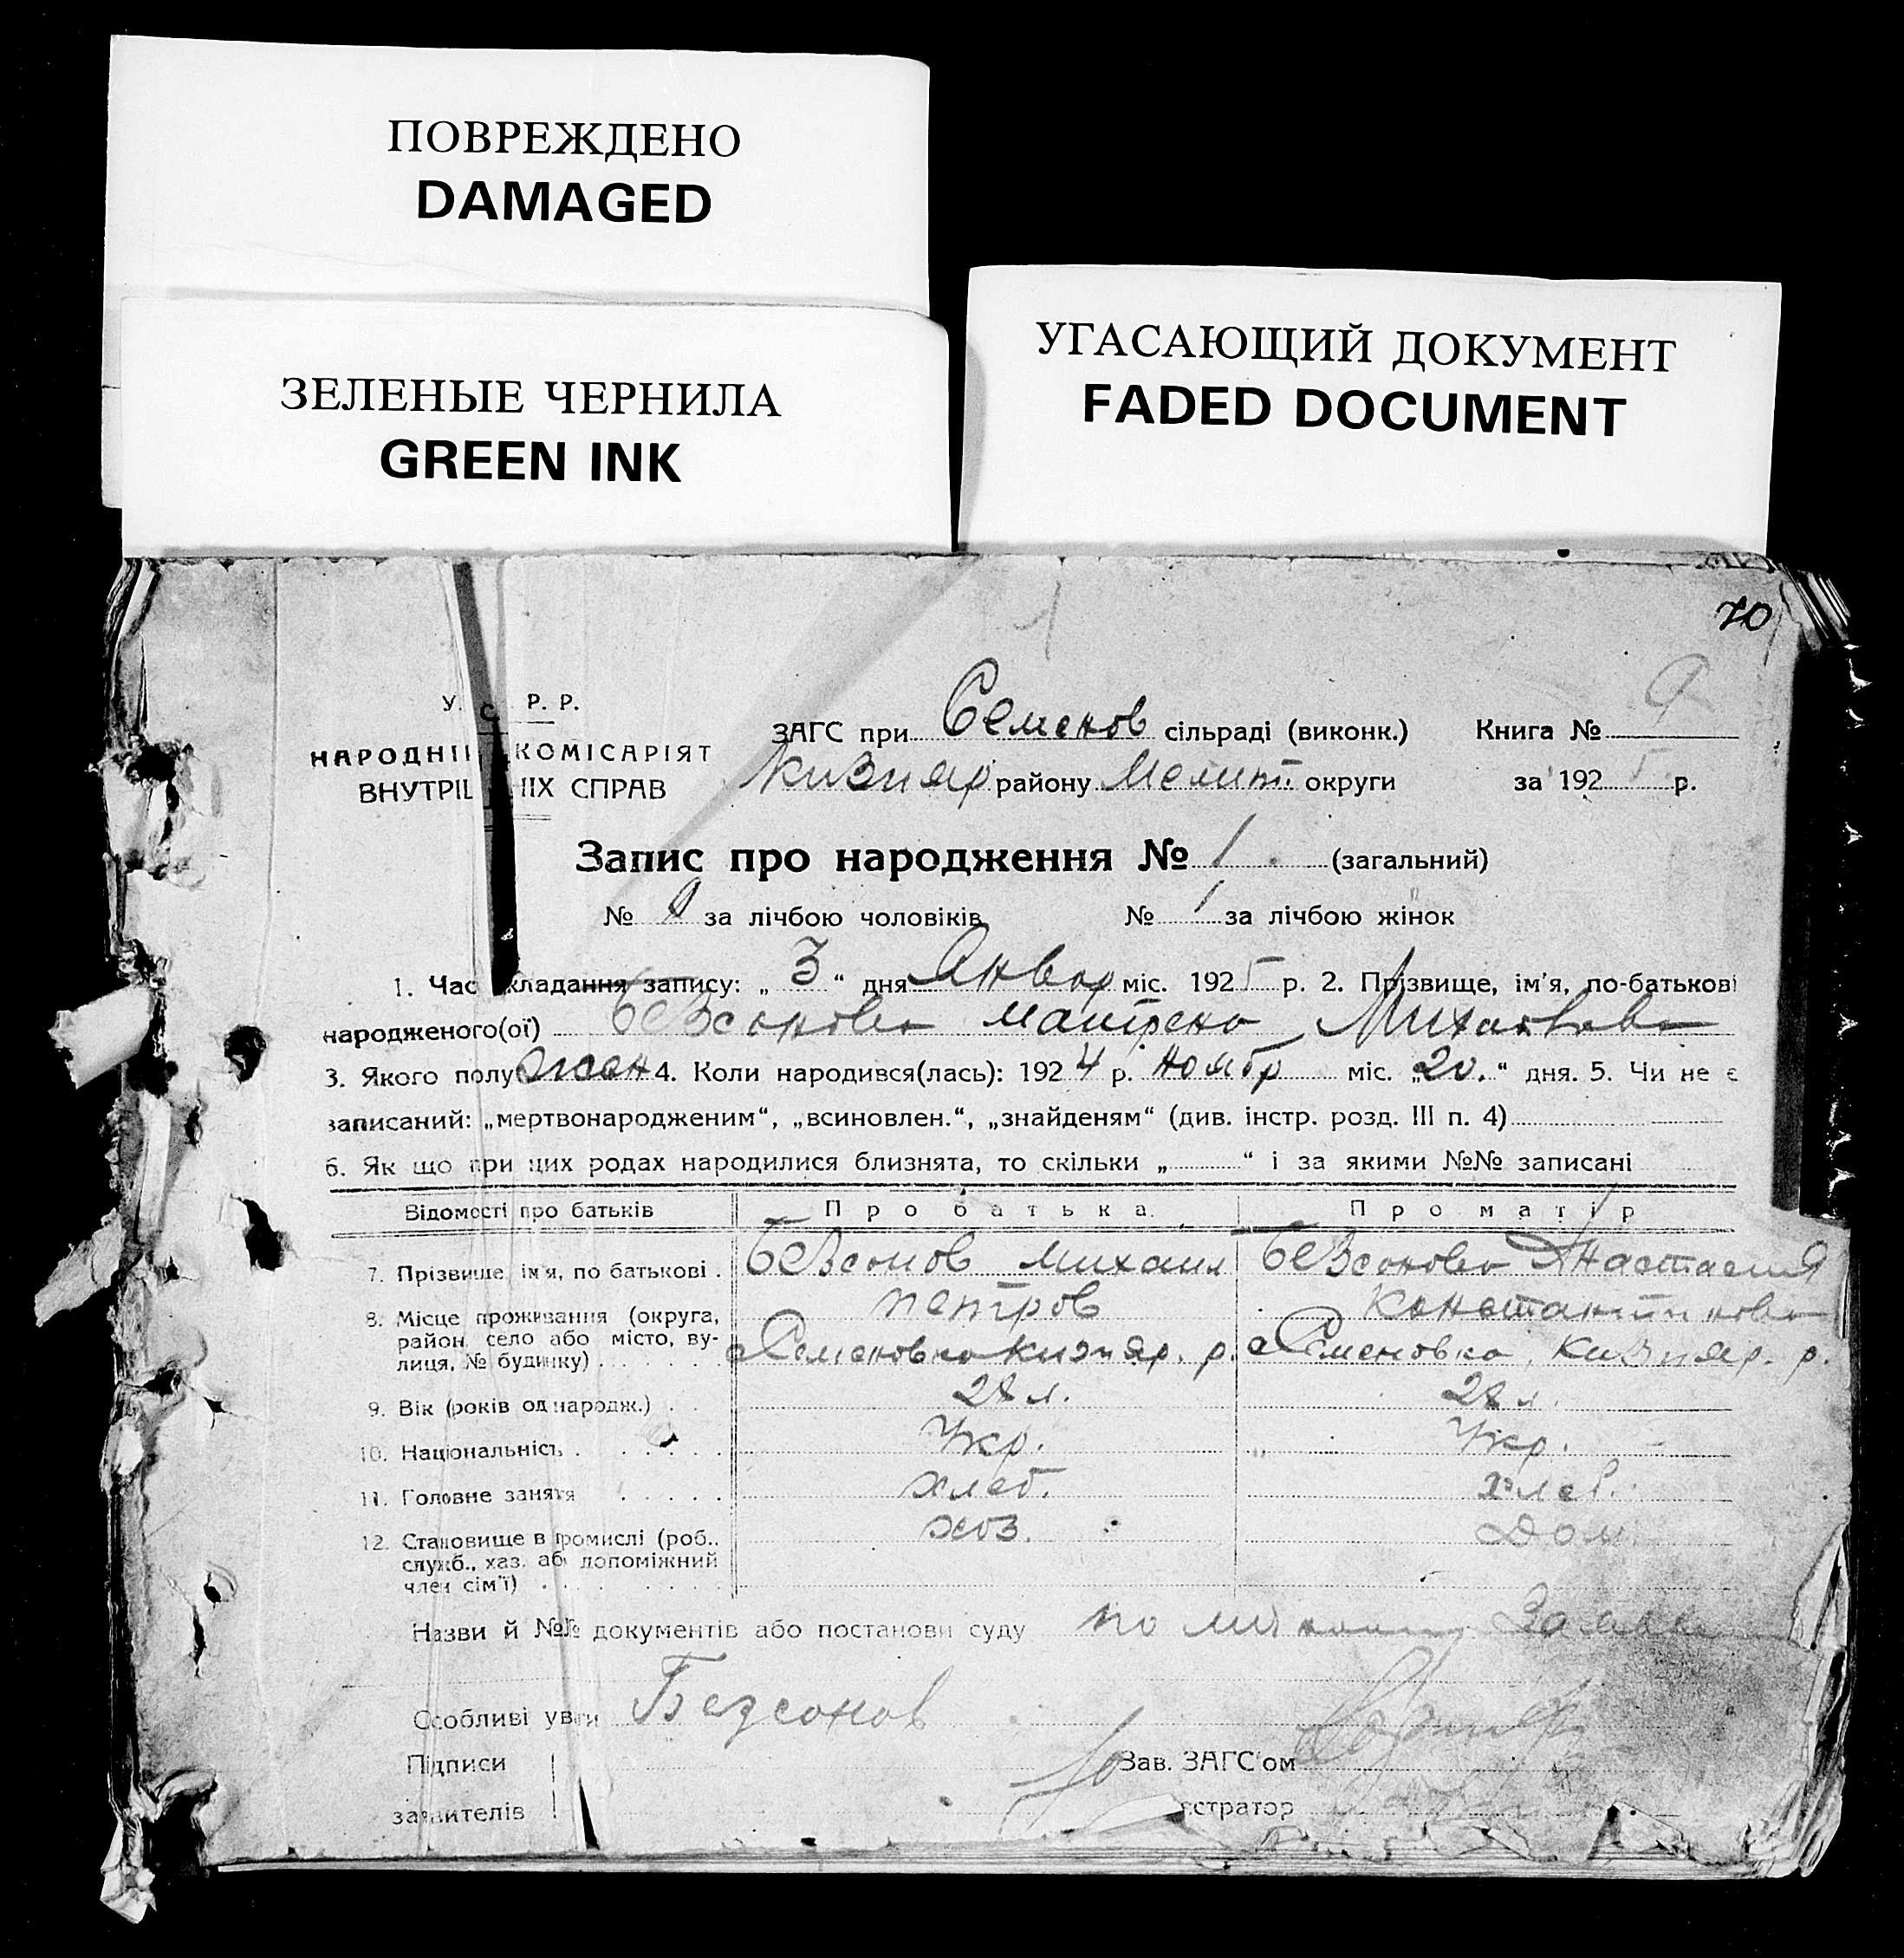 ПОВРЕЖДЕНО
DAMAGED
ЗЕЛЕНЫЕ ЧЕРНИЛА
GREEN INK
УГАСАЮЩИЙ ДОКУМЕНТ
FADED DOCUMENT
70
1
У. С. Р. Р.
НАРОДНІЙ КОМІСАРІЯТ
ВНУТРІШНІХ СПРАВ
ЗАГС при Семенов сільраді (виконк.) Книга № 9
Кизияр району Мелит. округи за 1925 р.
Запис про народження № 1 (загальний)
№ за лічбою чоловіків № 1 за лічбою жінок
1. Час складання запису: „ 3 “ дня Январ міс. 1925 р. 2. Прізвище, ім'я, по-батькові
народженого(ої) Безсонова Матрена Михайлова
3. Якого полу жен 4. Коли народився(лась): 1924 р. ноябр міс. „20.“ дня. 5. Чи не є
записаний: „мертвонародженим“, „всиновлен.“, „знайденям“ (див. інстр. розд. III п. 4)
6. Як що при цих родах народилися близнята, то скільки „ “ і за якими №№ записані
Відомості про батьків Про батька Про матір
7. Прізвище, ім'я, по батькові . Безсонов Михаил Безсонова Анастасия
петров Константинова
8. Місце проживання (округа,
район, село або місто, ву-
лиця, № будинку) . . . . . . с Семеновка Кизияр. р. с Семеновка, Кизияр. р.
9. Вік (років од народж.) . . 28 л. 28 л.
10. Національність . . . . . . Укр. Укр.
11. Головне заняття . . . . . хлеб. хлеб.
12. Становище в промислі (роб., хоз. Дом.
служб., хаз. або допоміжний
член сім'ї) . . . . . . . . .
Назви й №№ документів або постанови суду по личном. Заявлен
Особливі уваги Безсонов
Підписи Зав. ЗАГС'ом
заявителів єстратор